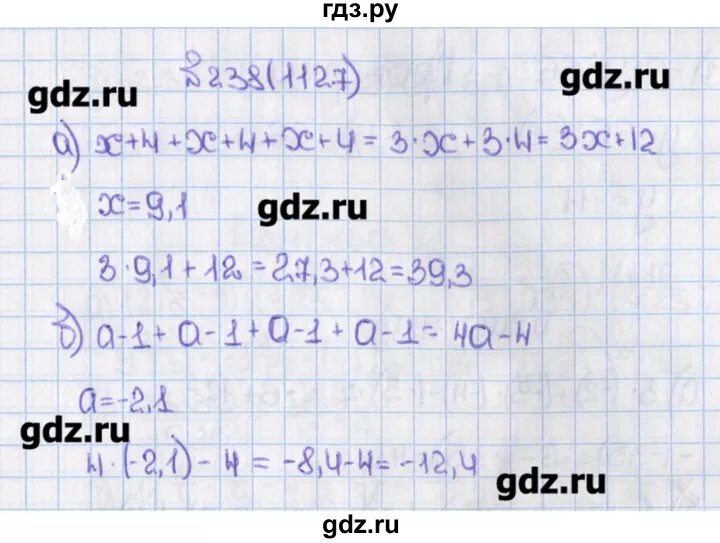 гдз.ру
№238(1127)
gdz.ru
gdz.ru
а) x+4+x+4+x+4=3·x+3·4=3x+12
x=9,1
gdz.ru
3·9,1+12=27,3+12=39,3
б) a-1+a-1+a-1+a-1=4a-4
a=-2,1
gdz.ru
4·(-2,1)-4=-8,4-4=-12,4
gdz.ru
gdz.ru